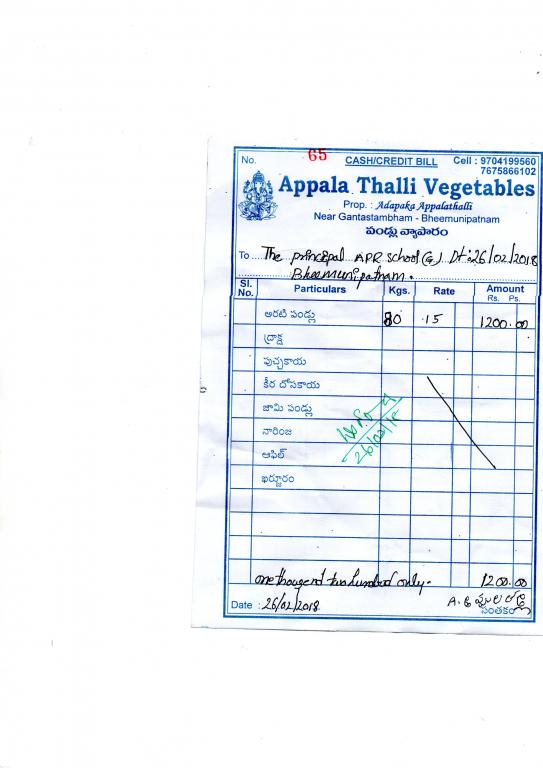 No. 65 CASH/CREDIT BILL Cell : 9704199560
7675866102
Appala Thalli Vegetables
Prop. : Adapaka Appalathalli
Near Gantastambham - Bheemunipatnam
పండ్లు వ్యాపారం
To The principal APR school (G) Dt: 26/02/2018
Bheemunipatnam.
Sl. No. Particulars Kgs. Rate Amount Rs. Ps.
అరటి పండ్లు 80 15 1200.00
ద్రాక్ష
పుచ్చకాయ
కీర దోసకాయ
జామి పండ్లు
నారింజ
ఆఫిల్
ఖర్జూరం
one thousend two hundred only. 1200.00
Date : 26/02/2018
సంతకం